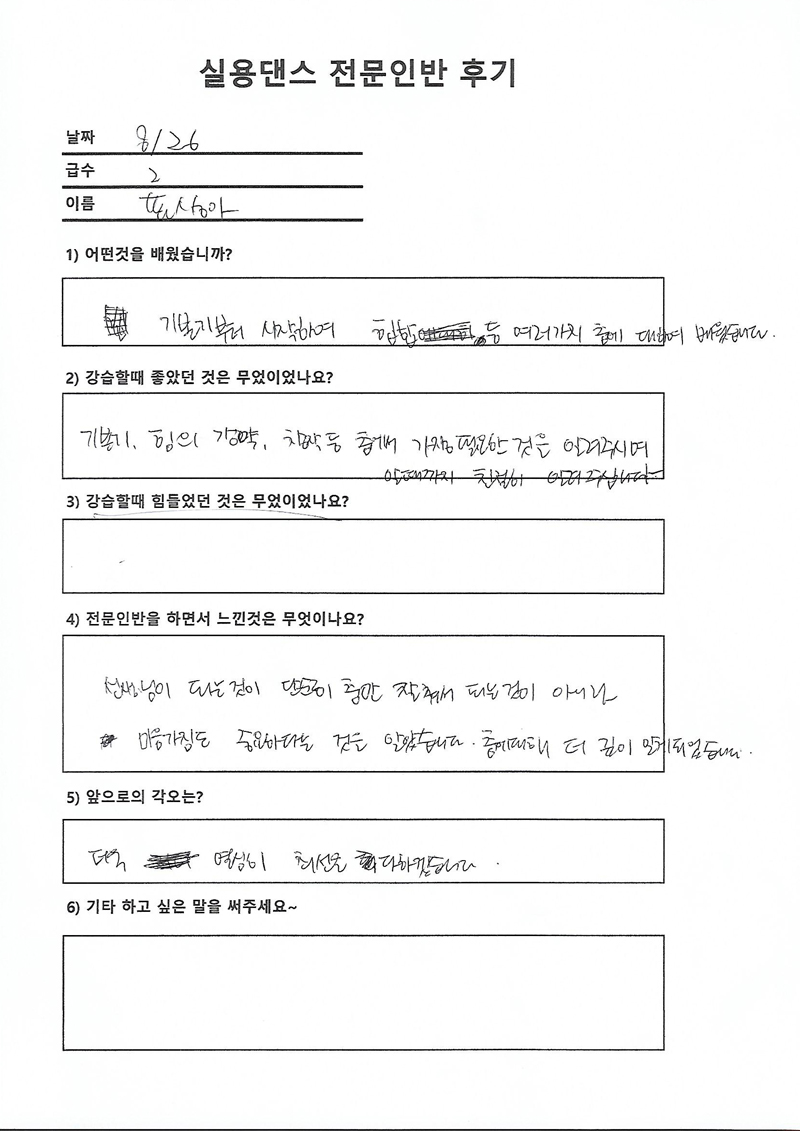 실용댄스 전문인반 후기
날짜 8/26
급수 2
이름
1) 어떤것을 배웠습니까?
기본기부터 시작하여 힙합 등 여러가지 춤에 대하여 배웠습니다.
2) 강습할때 좋았던 것은 무었이었나요?
기본기, 힘의 강약, 동작 등 춤에서 가장 필요한 것을 알려주시며
알때까지 친절히 알려주십니다.
3) 강습할때 힘들었던 것은 무었이었나요?
4) 전문인반을 하면서 느낀것은 무엇이나요?
선생님이 되는것이 단순이 춤만 잘춰서 되는것이 아니라
마음가짐도 중요하다는 것을 알았습니다. 춤에대해 더 깊이 알게되었습니다.
5) 앞으로의 각오는?
더욱 열심히 최선을 다하겠습니다.
6) 기타 하고 싶은 말을 써주세요~